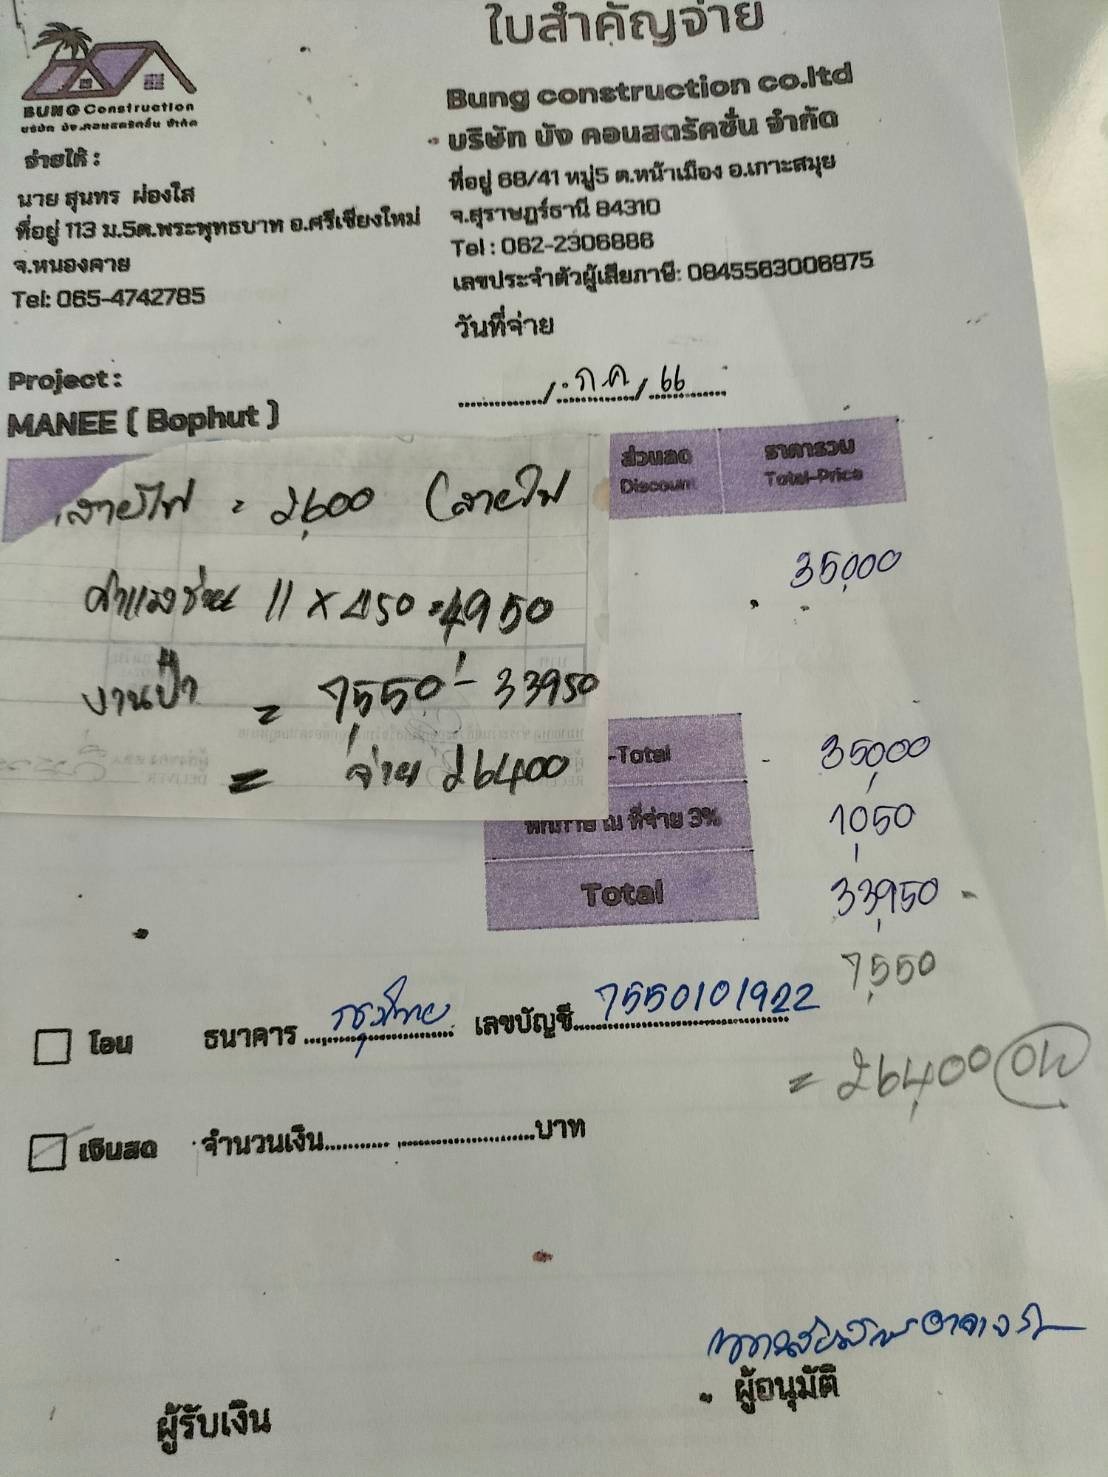 ใบสำคัญจ่าย
BUNG Construction
บริษัท บัง คอนสตรัคชั่น จำกัด
Bung construction co.ltd
บริษัท บัง คอนสตรัคชั่น จำกัด
ที่อยู่ 68/41 หมู่5 ต.หน้าเมือง อ.เกาะสมุย
จ.สุราษฎร์ธานี 84310
Tel : 062-2306886
เลขประจำตัวผู้เสียภาษี: 0845563006975
วันที่จ่าย
จ่ายให้ :
นาย สุนทร ผ่องใส
ที่อยู่ 113 ม.5ต.พระพุทธบาท อ.ศรีเชียงใหม่
จ.หนองคาย
Tel: 065-4742785
Project :
MANEE ( Bophut )
........../. ก.ค /. 66 ......
ส่วนลด ราคารวม
Discount Total-Price
สายไฟ = 2,600 (สายไฟ
ค่าแรงช่าง 11 x 450 = 4,950
งานป้า = 7,550 - 33950
= จ่าย 26400
35,000
-Total 35,000
ณ ที่จ่าย 3% 1,050
Total 33,950 -
7,550
= 26,400
โอน ธนาคาร....กรุงไทย.... เลขบัญชี...7550101922
เงินสด จำนวนเงิน.......... ......................บาท
ผู้อนุมัติ
ผู้รับเงิน